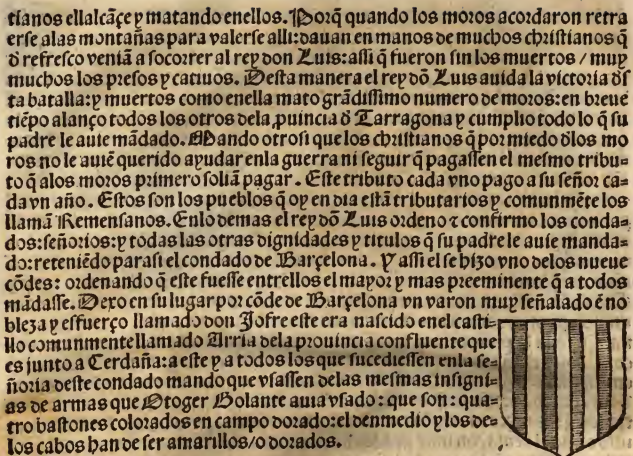 tianos ellalcãçe y matando enellos. Porq̃ quando los moros acordaron retra
erse alas montañas para valerse alli: dauan en manos de muchos christianos q̃
d̃ refresco veniã a socorrer al rey don Luis: assi q̃ fueron sin los muertos / muy
muchos los presos y catiuos. Desta manera el rey dõ Luis auida la victoria d̃s
ta batalla: y muertos como enella mato grãdissimo numero de moros: en breue
tiẽpo alanço todos los otros dela ꝓuincia d̃ Tarragona y cumplio todo lo q̃ su
padre le auie mãdado. Mando otrosi que los christianos q̃ por miedo d̃los mo
ros no le auiẽ querido ayudar enla guerra ni seguir q̃ pagassen el mesmo tribu-
to q̃ alos moros primero soliã pagar. Este tributo cada vno pago a su señor ca-
da vn año. Estos son los pueblos q̃ oy en dia estã tributarios y comunmẽte los
llamã Remensanos. Enlo demas el rey dõ Luis ordeno ⁊ confirmo los conda-
dos: señorios: y todas las otras dignidades y titulos q̃ su padre le auie manda-
do: reteniẽdo parasi el condado de Barçelona. Y assi el se hizo vno delos nueue
cõdes: ordenando q̃ este fuesse entrellos el mayor y mas preeminente q̃ a todos
mãdasse. Dexo en su lugar por cõde de Barçelona vn varon muy señalado ẽ no
bleza y esfuerço llamado don Jofre este era nascido enel casti-
llo comunmente llamado Arria dela prouincia confluente que
es junto a Cerdaña: a este y a todos los que sucediessen enla se-
ñoria deste condado mando que vsassen delas mesmas insigni-
as de armas que Otoger Golante auia vsado: que son: qua-
tro bastones colorados en campo dorado: el denmedio y los de-
los cabos han de ser amarillos/o dorados.